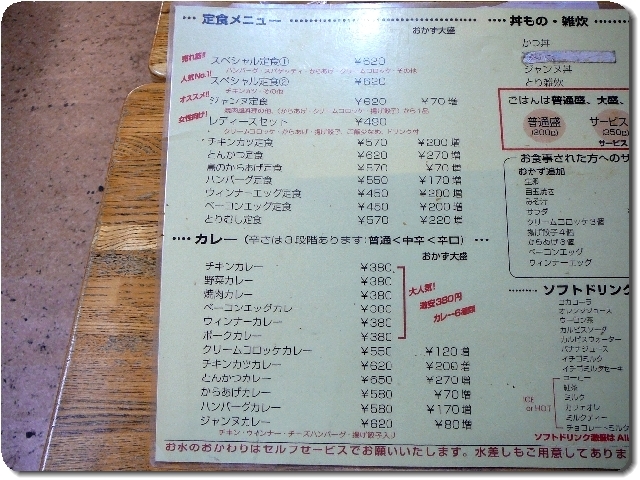 定食メニュー
おかず大盛
売れ筋!! スペシャル定食① ¥620
ハンバーグ・スパゲッティ・からあげ・クリームコロッケ・その他
人気No.1! スペシャル定食② ¥620
チキンカツ・その他
オススメ!! ジャンヌ定食 ¥620 ¥70増
女性向け! レディースセット ¥490
クリームコロッケ・からあげ・揚げ餃子、ご飯少なめ、ドリンク付
チキンカツ定食 ¥570 ¥200増
とんかつ定食 ¥620 ¥270増
鳥のからあげ定食 ¥570 ¥70増
ハンバーグ定食 ¥550 ¥170増
ウィンナーエッグ定食 ¥450 ¥200増
ベーコンエッグ定食 ¥450 ¥200増
とりむし定食 ¥570 ¥220増
カレー (辛さは3段階あります:普通<中辛<辛口)
おかず大盛
チキンカレー ¥380
野菜カレー ¥380
焼肉カレー ¥380
ベーコンエッグカレー ¥380
ウィンナーカレー ¥380
ポークカレー ¥380
大人気!
激安380円
カレー6種類
クリームコロッケカレー ¥550 ¥120増
チキンカツカレー ¥620 ¥200増
とんかつカレー ¥650 ¥270増
からあげカレー ¥580 ¥70増
ハンバーグカレー ¥580 ¥170増
ジャンヌカレー ¥620 ¥80増
チキン・ウィンナー・チーズハンバーグ・揚げ餃子入り
丼もの・雑炊
かつ丼
ジャンヌ丼
とり雑炊
ごはんは普通盛、大盛、
普通盛 サービス
(200g)
サービス
お食事された方へのサ
おかず追加
生卵
目玉焼き
みそ汁
サラダ
クリームコロッケ3個
揚げ餃子4個
からあげ3個
ベーコンエッグ
ウィンナーエッグ
ソフトドリンク
コカコーラ
オレンジジュース
ウーロン茶
カルピスソーダ
カルピスウォーター
バナナジュース
イチゴミルク
イチゴミルクセーキ
ICE or HOT
コーヒー
紅茶
ミルク
カフェオレ
ミルクティー
チョコレートミルク
ソフトドリンク
お水のおかわりはセルフサービスでお願いいたします。水差しもご用意してありま